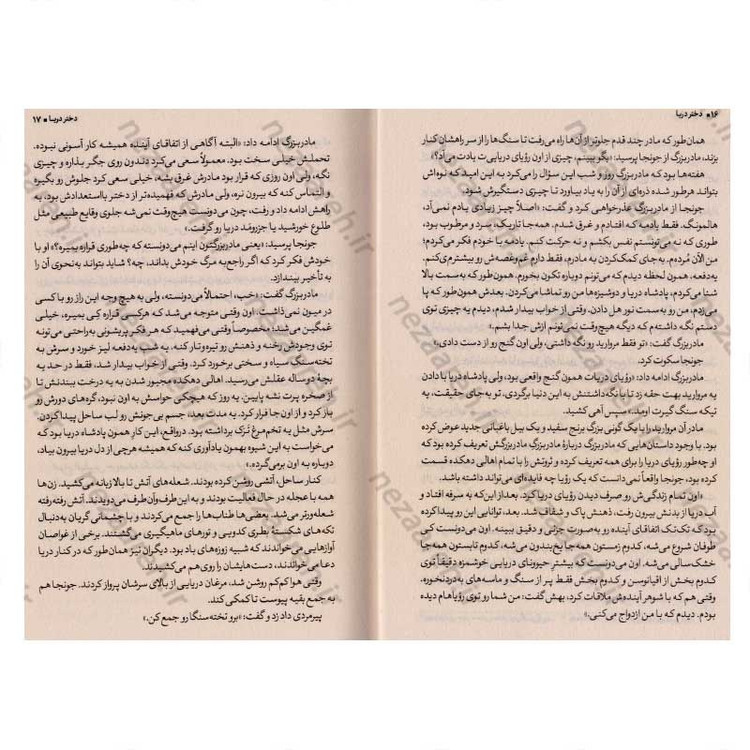 ۱۶ ■ دختر دریا
همان‌طور که مادر چند قدم جلوتر از آن‌ها راه می‌رفت تا سنگ‌ها را از سر راهشان کنار
بزند، مادربزرگ از جونجا پرسید: «بگو ببینم، چیزی از اون رؤیای دریایی‌ت یادت می‌آد؟»
هفته‌ها بود که مادربزرگ روز و شب این سؤال را می‌کرد به این امید که نوه‌اش
بتواند هرطور شده ذره‌ای از آن را به یاد بیاورد تا چیزی دستگیرش شود.
جونجا از مادربزرگ عذرخواهی کرد و گفت: «اصلاً چیز زیادی یادم نمی‌آد،
هالمونگ. فقط یادمه که افتادم و غرق شدم. همه‌جا تاریک، سرد و مرطوب بود،
طوری که نه می‌تونستم نفس بکشم و نه حرکت کنم. یادمه با خودم فکر می‌کردم؛
من الآن مُرده‌م. به‌جای کمک‌کردن به مادرم، فقط دارم غم‌وغصه‌ش رو بیشتر می‌کنم.
یه‌دفعه، همون لحظه دیدم که می‌تونم دوباره تکون بخورم. همون‌طور که به‌سمت بالا
شنا می‌کردم، پادشاه دریا و دوشیزه‌ها من رو تماشا می‌کردن. بعدش همون‌طور که پا
می‌زدم، من رو به سمت نور هل دادن. وقتی از خواب بیدار شدم، دیدم یه چیزی توی
دستم نگه داشته‌م که دیگه هیچ‌وقت نمی‌تونم ازش جدا بشم.»
مادربزرگ گفت: «تو فقط مروارید رو نگه داشتی، ولی اون گنج رو از دست دادی.»
جونجا سکوت کرد.
مادربزرگ ادامه داد: «رؤیای دریات همون گنج واقعی بود، ولی پادشاه دریا با دادن
یه مروارید بهت حقه زد تا با نگه‌داشتنش به این دنیا برگردی. تو به‌جای حقیقت، یه
تیکه سنگ گیرت اومد.» سپس آهی کشید.
مادر آن مروارید را با یک گونی بزرگ برنج سفید و یک بیل باغبانی جدید عوض کرده
بود. با وجود داستان‌هایی که مادربزرگ دربارهٔ مادربزرگِ مادربزرگش تعریف کرده بود که
او چه‌طور رؤیای دریا را برای همه تعریف کرده و ثروتش را با تمام اهالی دهکده قسمت
کرده بود، جونجا واقعاً نمی‌دانست که یک رؤیا چه فایده‌ای می‌تواند داشته باشد.
«اون تمام زندگی‌ش رو صرف دیدن رؤیای دریا کرد. بعد از این‌که به سرفه افتاد و
آب دریا از بدنش بیرون رفت، ذهنش پاک و شفاف شد. بعد، توانایی این رو پیدا کرده
بود که تک‌تک اتفاقای آینده رو به‌صورت جزئی و دقیق ببینه. اون می‌دونست کی
طوفان شروع می‌شه، کدوم زمستون همه‌جا یخ‌بندون می‌شه، کدوم تابستون همه‌جا
خشک‌سالی می‌شه. اون می‌دونست که بیشترِ حیوونای دریایی خوشمزه دقیقاً توی
کدوم بخش از اقیانوسن و کدوم بخش فقط پر از سنگ و ماسه‌های به‌دردنخوره.
وقتی هم که با شوهر آینده‌ش ملاقات کرد، بهش گفت: من شما رو توی رؤیاهام دیده
بودم. دیدم که با من ازدواج می‌کنی.»
دختر دریا ■ ۱۷
مادربزرگ ادامه داد: «البته آگاهی از اتفاقای آینده همیشه کار آسونی نبوده.
تحملش خیلی سخت بود. معمولاً سعی می‌کرد دندون روی جگر بذاره و چیزی
نگه، ولی اون روزی که قرار بود مادرش غرق بشه، خیلی سعی کرد جلوش رو بگیره
و التماس کنه که بیرون نره، ولی مادرش که فهمیده‌تر از دختر بااستعدادش بود، به
راهش ادامه داد و رفت، چون می‌دونست هیچ‌وقت نمی‌شه جلوی وقایع طبیعی مثل
طلوع خورشید یا جزرومد دریا رو گرفت.»
جونجا پرسید: «یعنی مادربزرگتون اینم می‌دونسته که چه‌طوری قراره بمیره؟» او با
خودش فکر کرد که اگر راجع‌به مرگ خودش بداند، چه؟ شاید بتواند به‌نحوی آن را
به تأخیر بیندازد.
مادربزرگ گفت: «خب، احتمالاً می‌دونسته، ولی به هیچ وجه این راز رو با کسی
در میون نمی‌ذاشت. اون وقتی متوجه می‌شد که هرکسی قراره کی بمیره، خیلی
غمگین می‌شد؛ مخصوصاً وقتی می‌فهمید که هر فکر پریشونی به‌راحتی می‌تونه
توی وجودش رخنه و ذهنش رو تیره‌وتار کنه. یه شب یه‌دفعه لیز خورد و سرش به
تخته‌سنگ سیاه و سختی برخورد کرد. وقتی از خواب بیدار شد، فقط در حد یه
بچهٔ دوساله عقلش می‌رسید. اهالی دهکده مجبور شدن به یه درخت ببندنش تا
از صخره پرت نشه پایین. یه روز که هیچ‌کی حواسش به اون نبود، گره‌های دورش رو
باز کرد و از اون‌جا فرار کرد. یه مدت بعد، جسم بی‌جونش رو لب ساحل پیدا کردن.
سرش مثل یه تخم‌مرغ تَرَک برداشته بود. درواقع، این کارِ همون پادشاه دریا بود که
می‌خواست به این شیوه بهمون یادآوری کنه که همیشه هرچی از دل دریا بیرون بیاد،
دوباره به اون برمی‌گرده.»
کنار ساحل، آتشی روشن کرده بودند. شعله‌های آتش تا بالا زبانه می‌کشید. زن‌ها
همه با عجله در حال فعالیت بودند و به این‌طرف‌وآن‌طرف می‌دویدند. آتش رفته‌رفته
شعله‌ورتر می‌شد. بعضی‌ها طناب‌ها را جمع می‌کردند و با چشمانی گریان به‌دنبال
تکه‌های شکستهٔ بطری کدویی و تورهای ماهیگیری می‌گشتند. برخی از غواصان
آوازهایی می‌خواندند که شبیه زوزه‌های باد بود. دیگران نیز همان‌طور که در کنار دریا
دعا می‌خواندند، دست‌هایشان را روی هم می‌کشیدند.
وقتی هوا کم‌کم روشن شد، مرغان دریایی از بالای سرشان پرواز کردند. جونجا هم
به جمع بقیه پیوست تا کمکی کند.
پیرمردی داد زد و گفت: «برو تخته‌سنگا رو جمع کن.»
nezaareh.ir